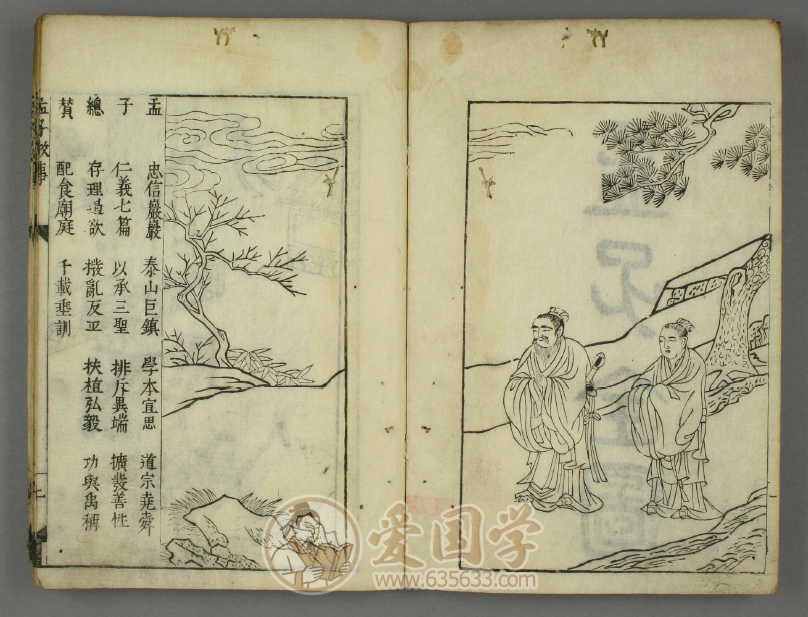 孟 忠信巖巖 泰山巨鎮 學本宜思 道宗堯舜
子 仁義七篇 以承三聖 排斥異端 擴發善性
總 存理遏欲 撥亂反正 扶植弘毅 功與禹稱
賛 配食廟庭 千載垂訓
孟子
爱国学
www.635633.com